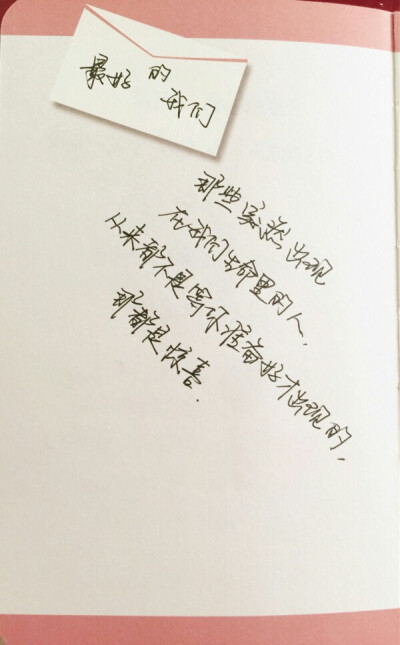 最好的
我们
那些忽然出现
在我们生命里的人，
从来都不是等你准备好才出现的，
那都是惊喜．